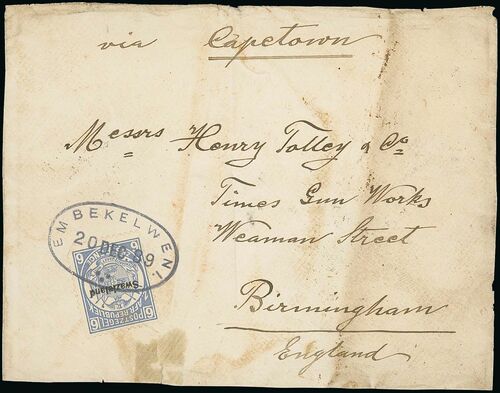 via Capetown
Messrs Henry Tolley & Co
Times Gun Works
Weaman Street
Birmingham
England
EMBEKELWENI.
20 DEC. 89
Swazieland
POSTZEGEL
Z. AFR. REPUBLIEK
6
6
6
6